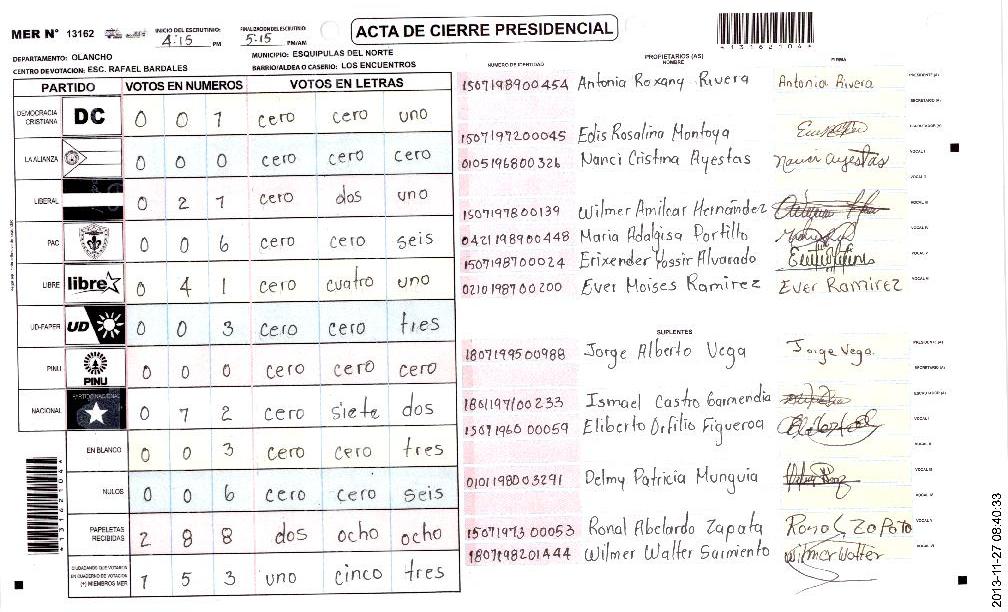 MER N° 13162 INICIO DEL ESCRUTINIO: 4:15 PM FINALIZACION DEL ESCRUTINIO: 5:15 PM/AM
ACTA DE CIERRE PRESIDENCIAL
*131621041*
DEPARTAMENTO: OLANCHO MUNICIPIO: ESQUIPULAS DEL NORTE
CENTRO DE VOTACION: ESC. RAFAEL BARDALES BARRIO/ALDEA O CASERIO: LOS ENCUENTROS
PARTIDO VOTOS EN NUMEROS VOTOS EN LETRAS
DEMOCRACIA CRISTIANA DC 0 0 1 cero cero uno
LA ALIANZA 0 0 0 cero cero cero
LIBERAL 0 2 1 cero dos uno
PAC 0 0 6 cero cero seis
LIBRE libre 0 4 1 cero cuatro uno
UD-FAPER UD 0 0 3 cero cero tres
PINU PINU 0 0 0 cero cero cero
NACIONAL PARTIDO NACIONAL 0 7 2 cero siete dos
EN BLANCO 0 0 3 cero cero tres
NULOS 0 0 6 cero cero seis
PAPELETAS RECIBIDAS 2 8 8 dos ocho ocho
CIUDADANOS QUE VOTARON EN CUADERNO DE VOTACION (+) MIEMBROS MER 1 5 3 uno cinco tres
NUMERO DE IDENTIDAD PROPIETARIOS (AS) NOMBRE FIRMA
1507198900454 Antonia Roxany Rivera Antonia Rivera PRESIDENTE (A)
SECRETARIO (A)
1507197200045 Edis Rosalina Montoya ESCRUTADOR (A)
0105196800326 Nanci Cristina Ayestas Nanci Ayestas VOCAL I
VOCAL II
1507197800139 Wilmer Amilcar Hernández VOCAL III
0421198900448 Maria Adalgisa Portillo VOCAL IV
1507198700024 Erixender Yossir Alvarado VOCAL V
0210198700200 Ever Moises Ramirez Ever Ramirez VOCAL VI
SUPLENTES
1807199500988 Jorge Alberto Vega Jorge Vega. PRESIDENTE (A)
SECRETARIO (A)
1801197100233 Ismael Castro Garmendia ESCRUTADOR (A)
1507196000059 Eliberto Orfilio Figueroa VOCAL I
VOCAL II
0101198003291 Delmy Patricia Munguia VOCAL III
VOCAL IV
1507197300053 Ronal Abelardo Zapata Ronal Zapata VOCAL V
1807198201444 Wilmer Walter Sarmiento Wilmer Walter VOCAL VI
*131621041*
2013-11-27 08:40:33